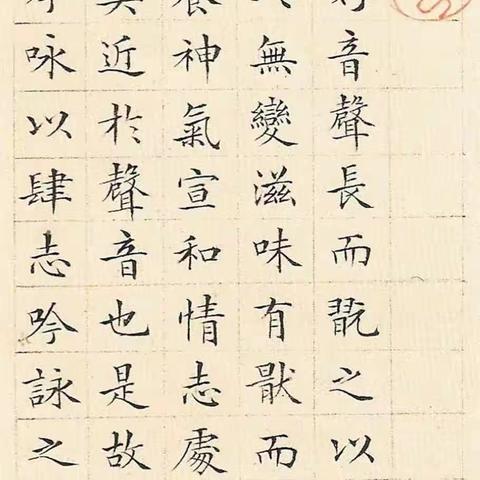 音聲長而翫之以
無變滋味有猒而
養神氣宣和情志處
近於聲音也是故
咏以肆志吟詠之